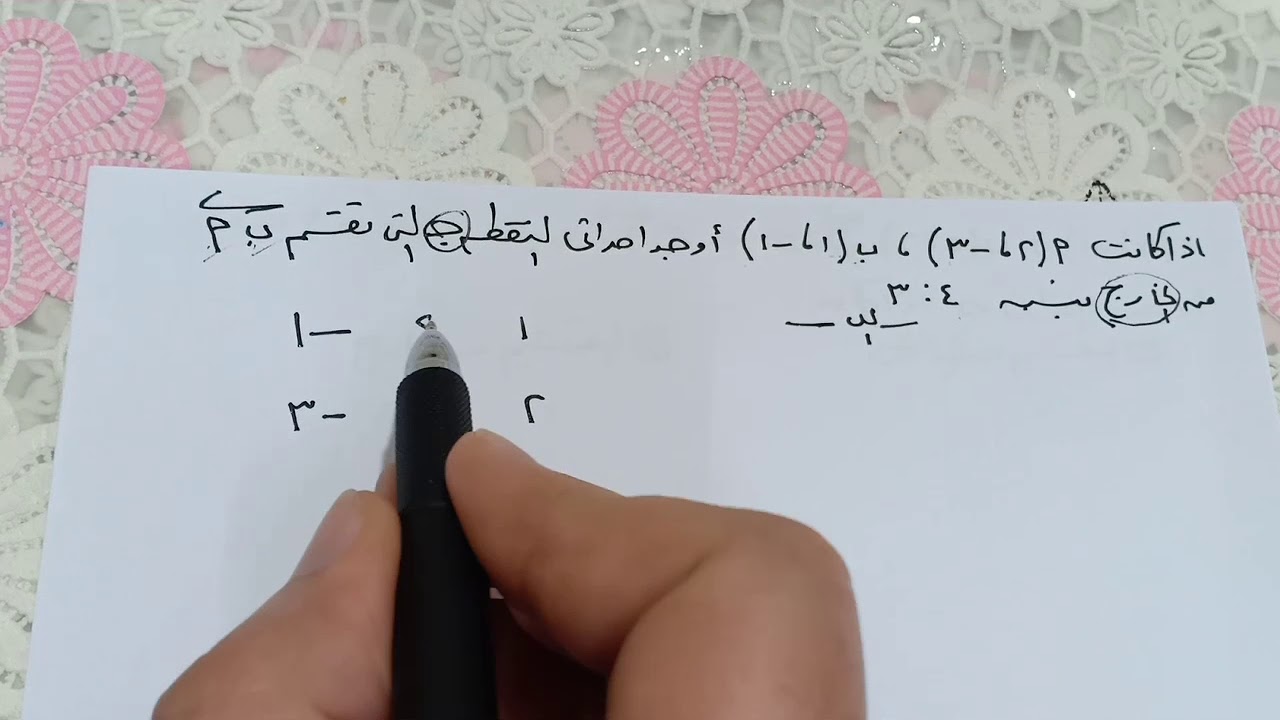 اذا كانت م(٢ ، -٣) ، ب(١ ، -١) أوجد احداثى النقطة ج التى تقسم ب م
من الخارج بنسبة ٤ : ٣
١ -١
٢ -٣